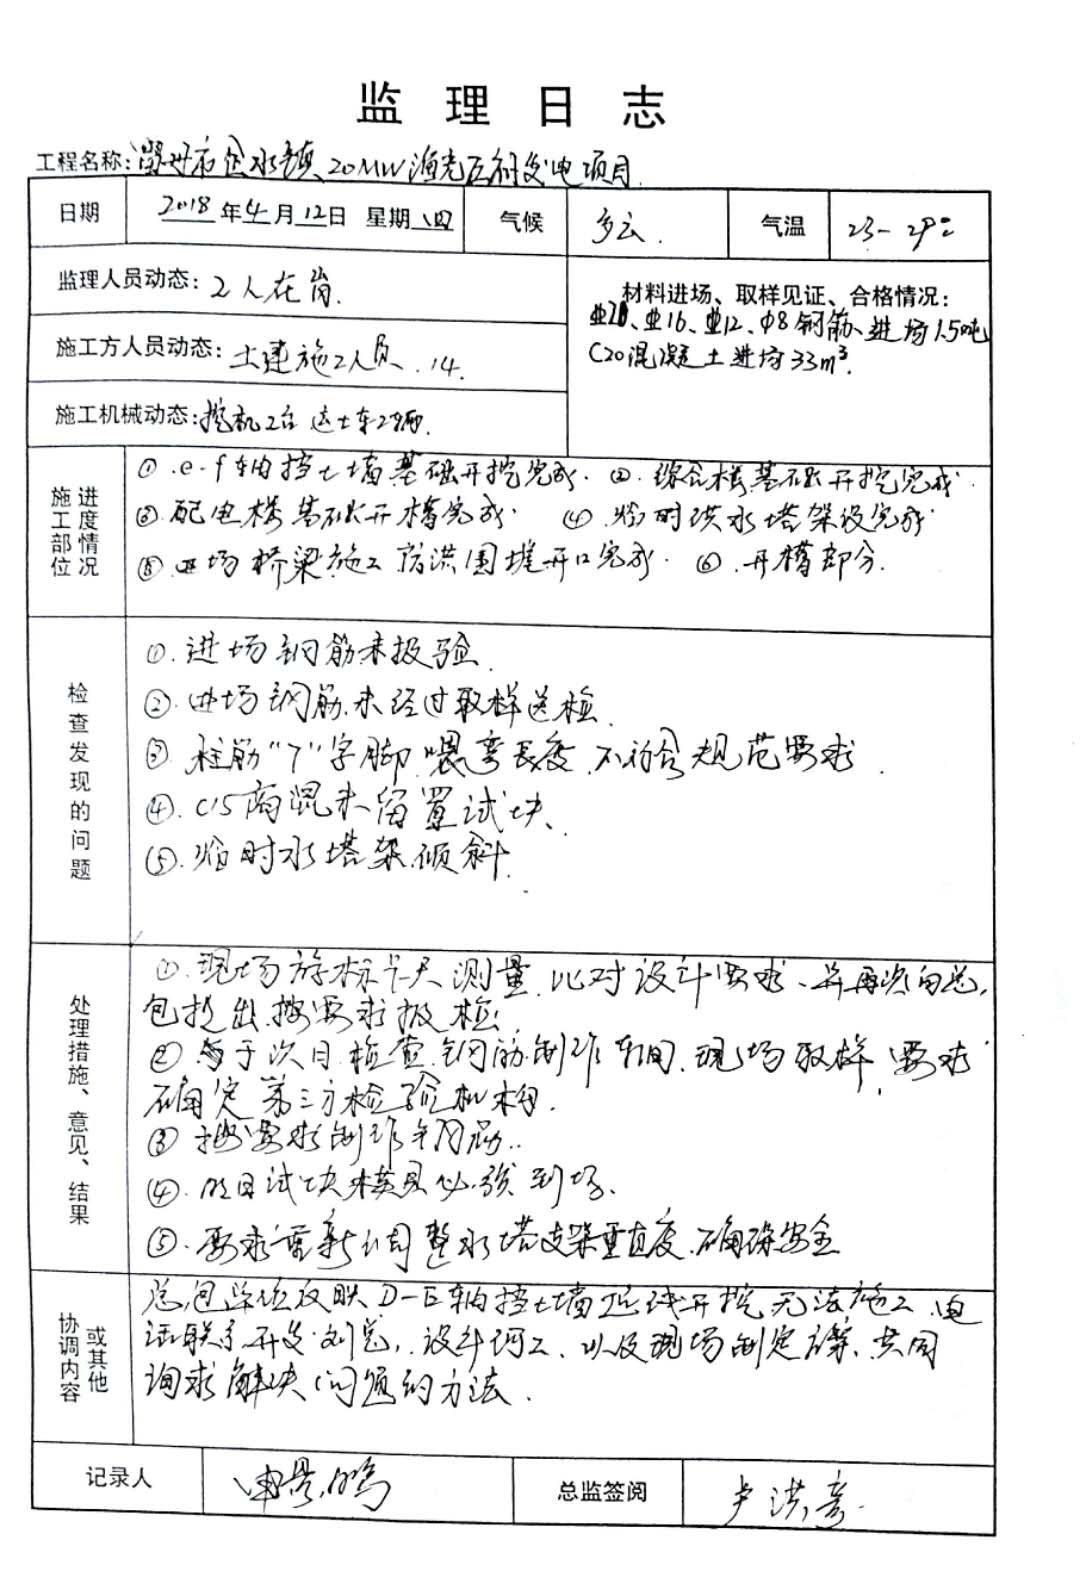 监理日志
工程名称: 市 水镇20MW渔光互补发电项目
日期 2018年4月12日 星期四 气候 多云. 气温 23-29℃
监理人员动态: 2人在岗.
施工方人员动态: 土建施工人员. 14.
施工机械动态: 挖机2台 运土车2辆.
材料进场、取样见证、合格情况:
Φ20、Φ16、Φ12、Φ8钢筋、进场1.5吨
C20混凝土进场33m³.
施工部位 进度情况
①.e-f轴挡土墙基础开挖完成. ②.综合楼基础开挖完成.
③.配电楼基础开槽完成. ④.临时供水塔架设完成
⑤.进场桥梁施工防洪围堰开口完成. ⑥.开槽部分.
检查发现的问题
①.进场钢筋未报验.
②.进场钢筋.未经过取样送检.
③.柱筋“7”字脚 弯长度.不符合规范要求.
④.C15商混未留置试块.
⑤.临时水塔架倾斜.
处理措施、意见、结果
①.现场游标卡尺测量.比对设计要求、并再次向总
包提出.按要求报检.
②.与于次日.检查.钢筋制作车间.现场取样,要求
确定第三方检验机构.
③按要求制作钢筋..
④.明日试块模具必须到场.
⑤.要求重新调整水塔支架垂直度.确保安全
协调内容 或其他
总包单位反映D-E轴挡土墙 开挖无法施工.电
话联系开发刘总,.设计 工、以及现场制定方案,共同
询求解决问题的方法.
记录人 申景鹏 总监签阅 卢洪彦.